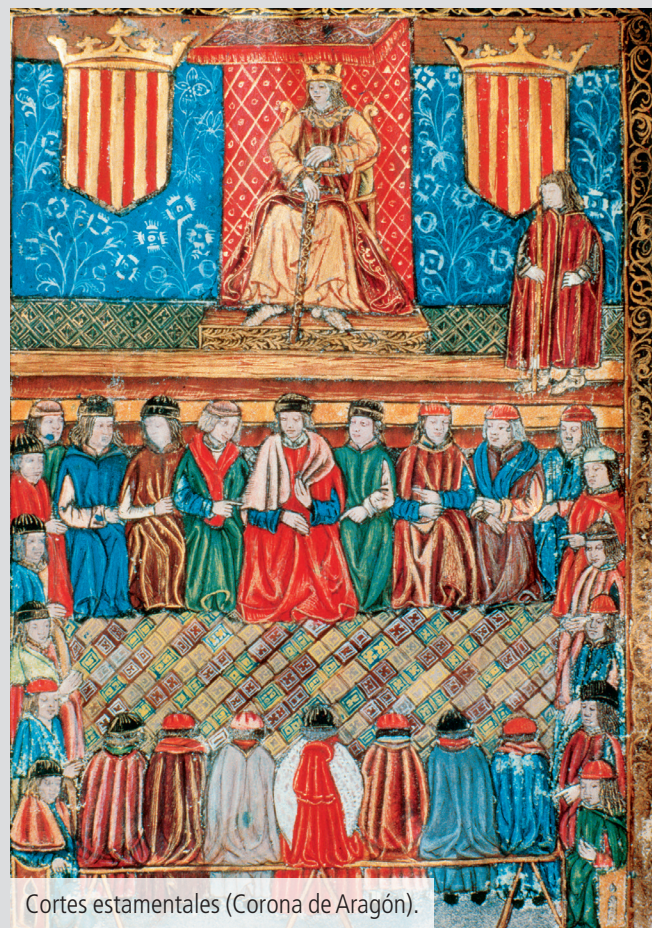 Cortes estamentales (Corona de Aragón).